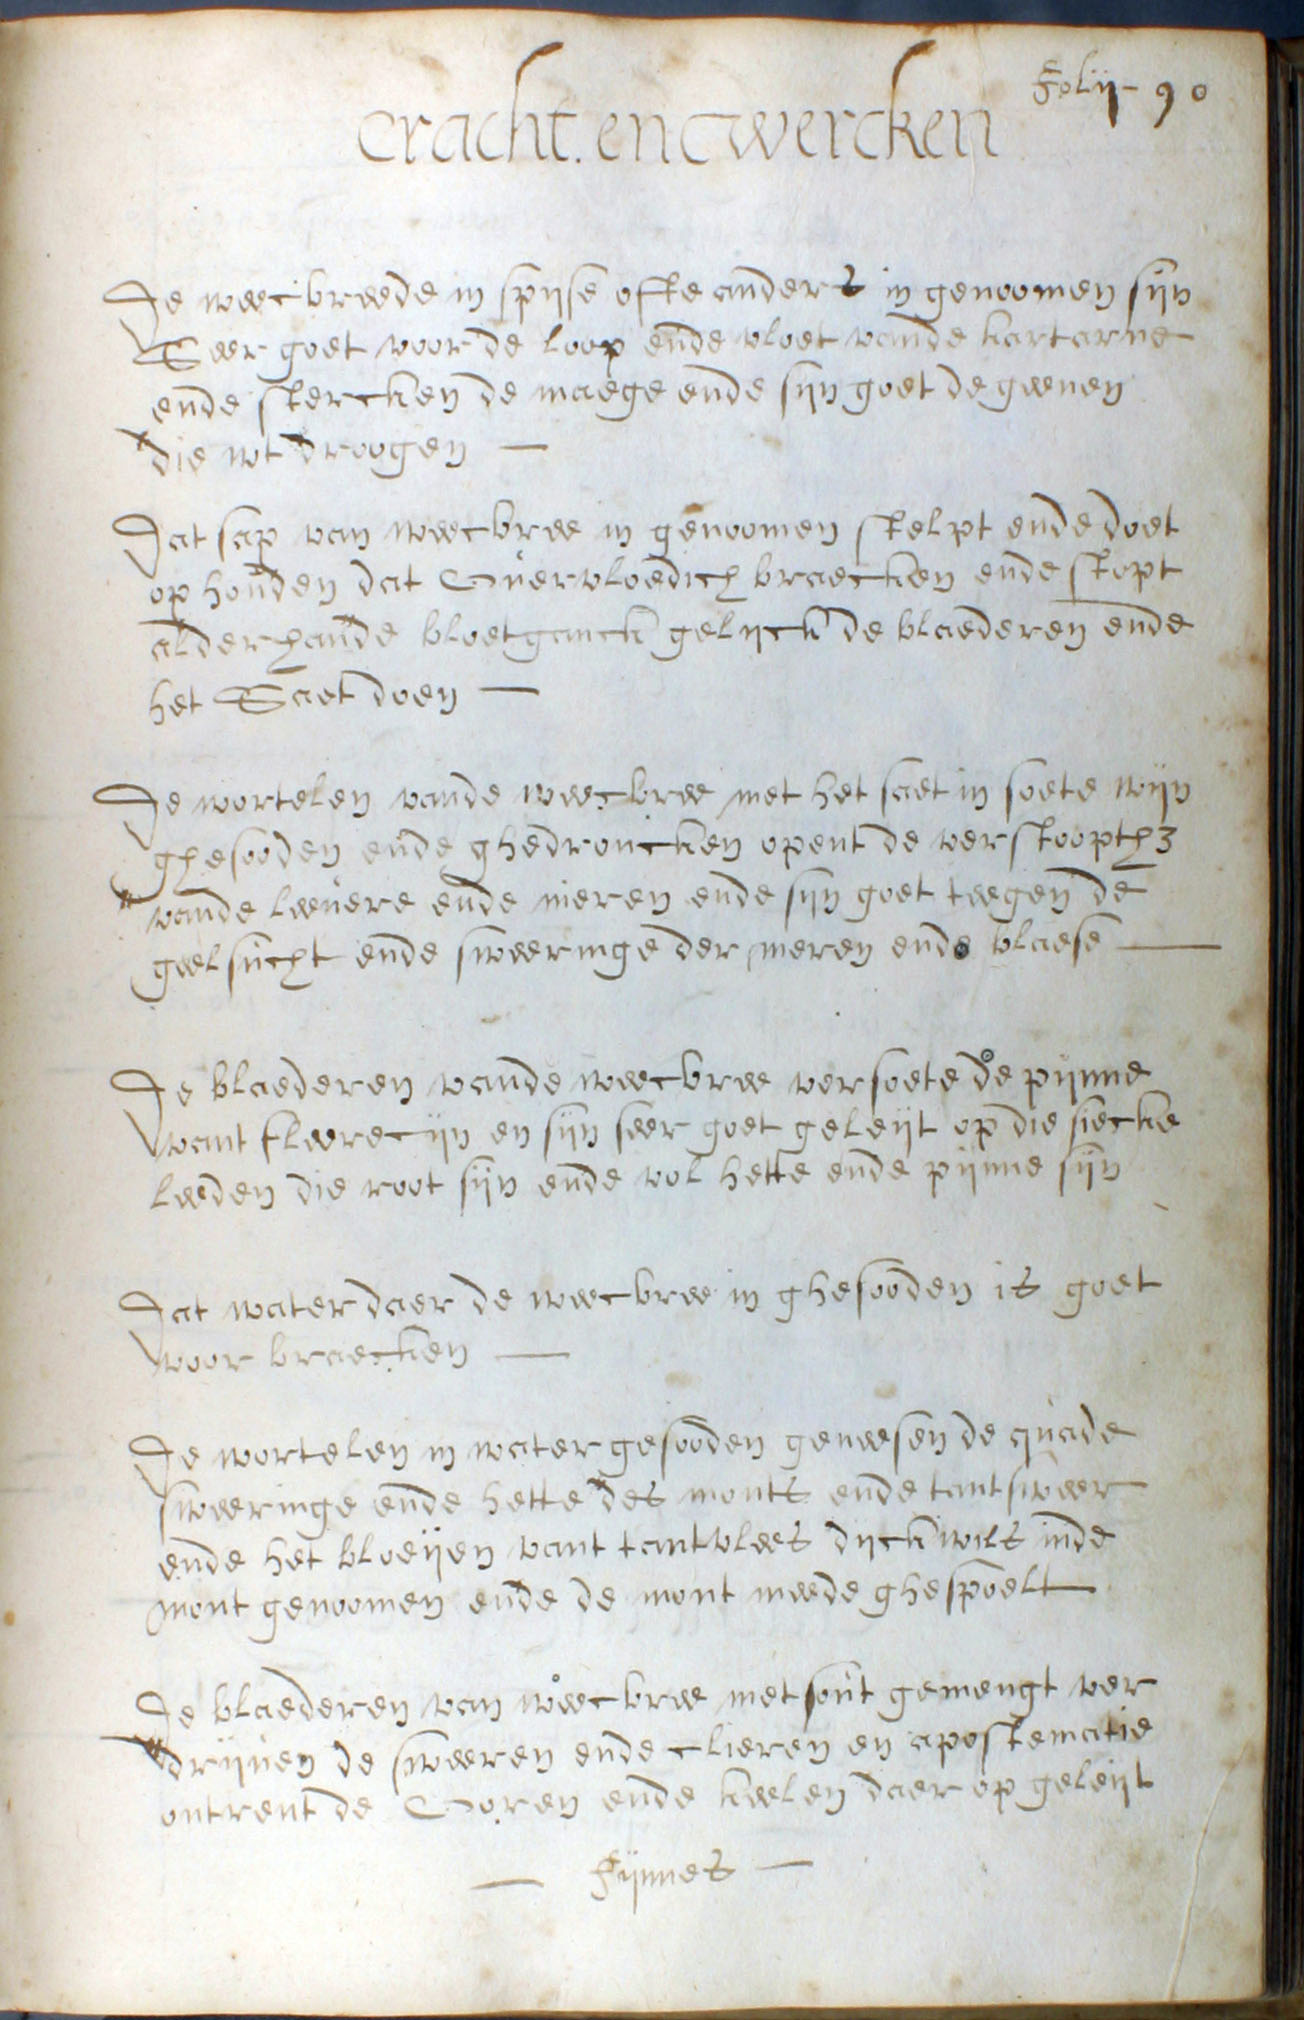 Folij - 90
cracht. en twercken
De weechbreede in spijse ofte anders in genoomen sijn
Seer goet voor de loop ende vloet vande kartarne
ende stercken de maege ende sijn goet de geenen
die wt droogen —
Dat sap van weechbree in genoomen stelpt ende doet
op houden dat Overvloedich braecken ende stopt
alderhande bloetganck gelijck de blaederen ende
het Saet doen —
De wortelen vande weechbree met het saet in soete wijn
ghesooden ende ghedroncken opent de
vande leevere ende nieren ende sijn goet teegen de
geelsucht ende sweeringe der nieren ende blaese —
De blaederen vande weechbree versoete de pijnne
vant fleerecijn en sijn seer goet geleijt op die siecke
leeden die root sijn ende vol hette ende pijnne sijn
Dat water daer de weechbree in ghesooden is goet
voor braecken —
De wortelen in water gesooden geneesen de quade
sweeringe ende hette des monts ende tantsweer
ende het bloeijen vant tantvlees dijckwils inde
mont genoomen ende de mont meede ghespoelt
De blaederen van weechbree met sout gemengt ver
drijven de sweeren ende clieren en apostematie
ontrent de Ooren ende keelen daer op geleijt
— Fijnnes —